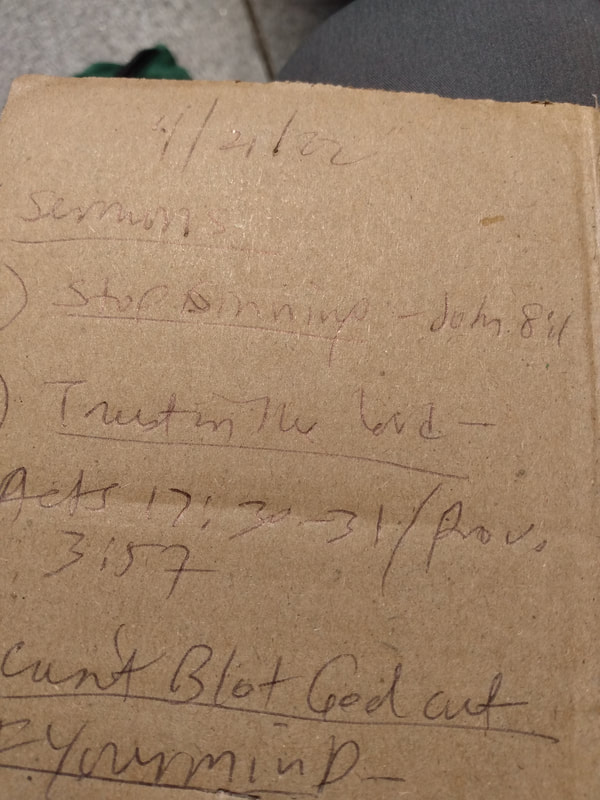 4/21/22
Sermons
) Stop Sinning - John 8:11
) Trust in the Lord -
Acts 17:30-31/Prov.
3:57
can't Blot God out
F Your minD -